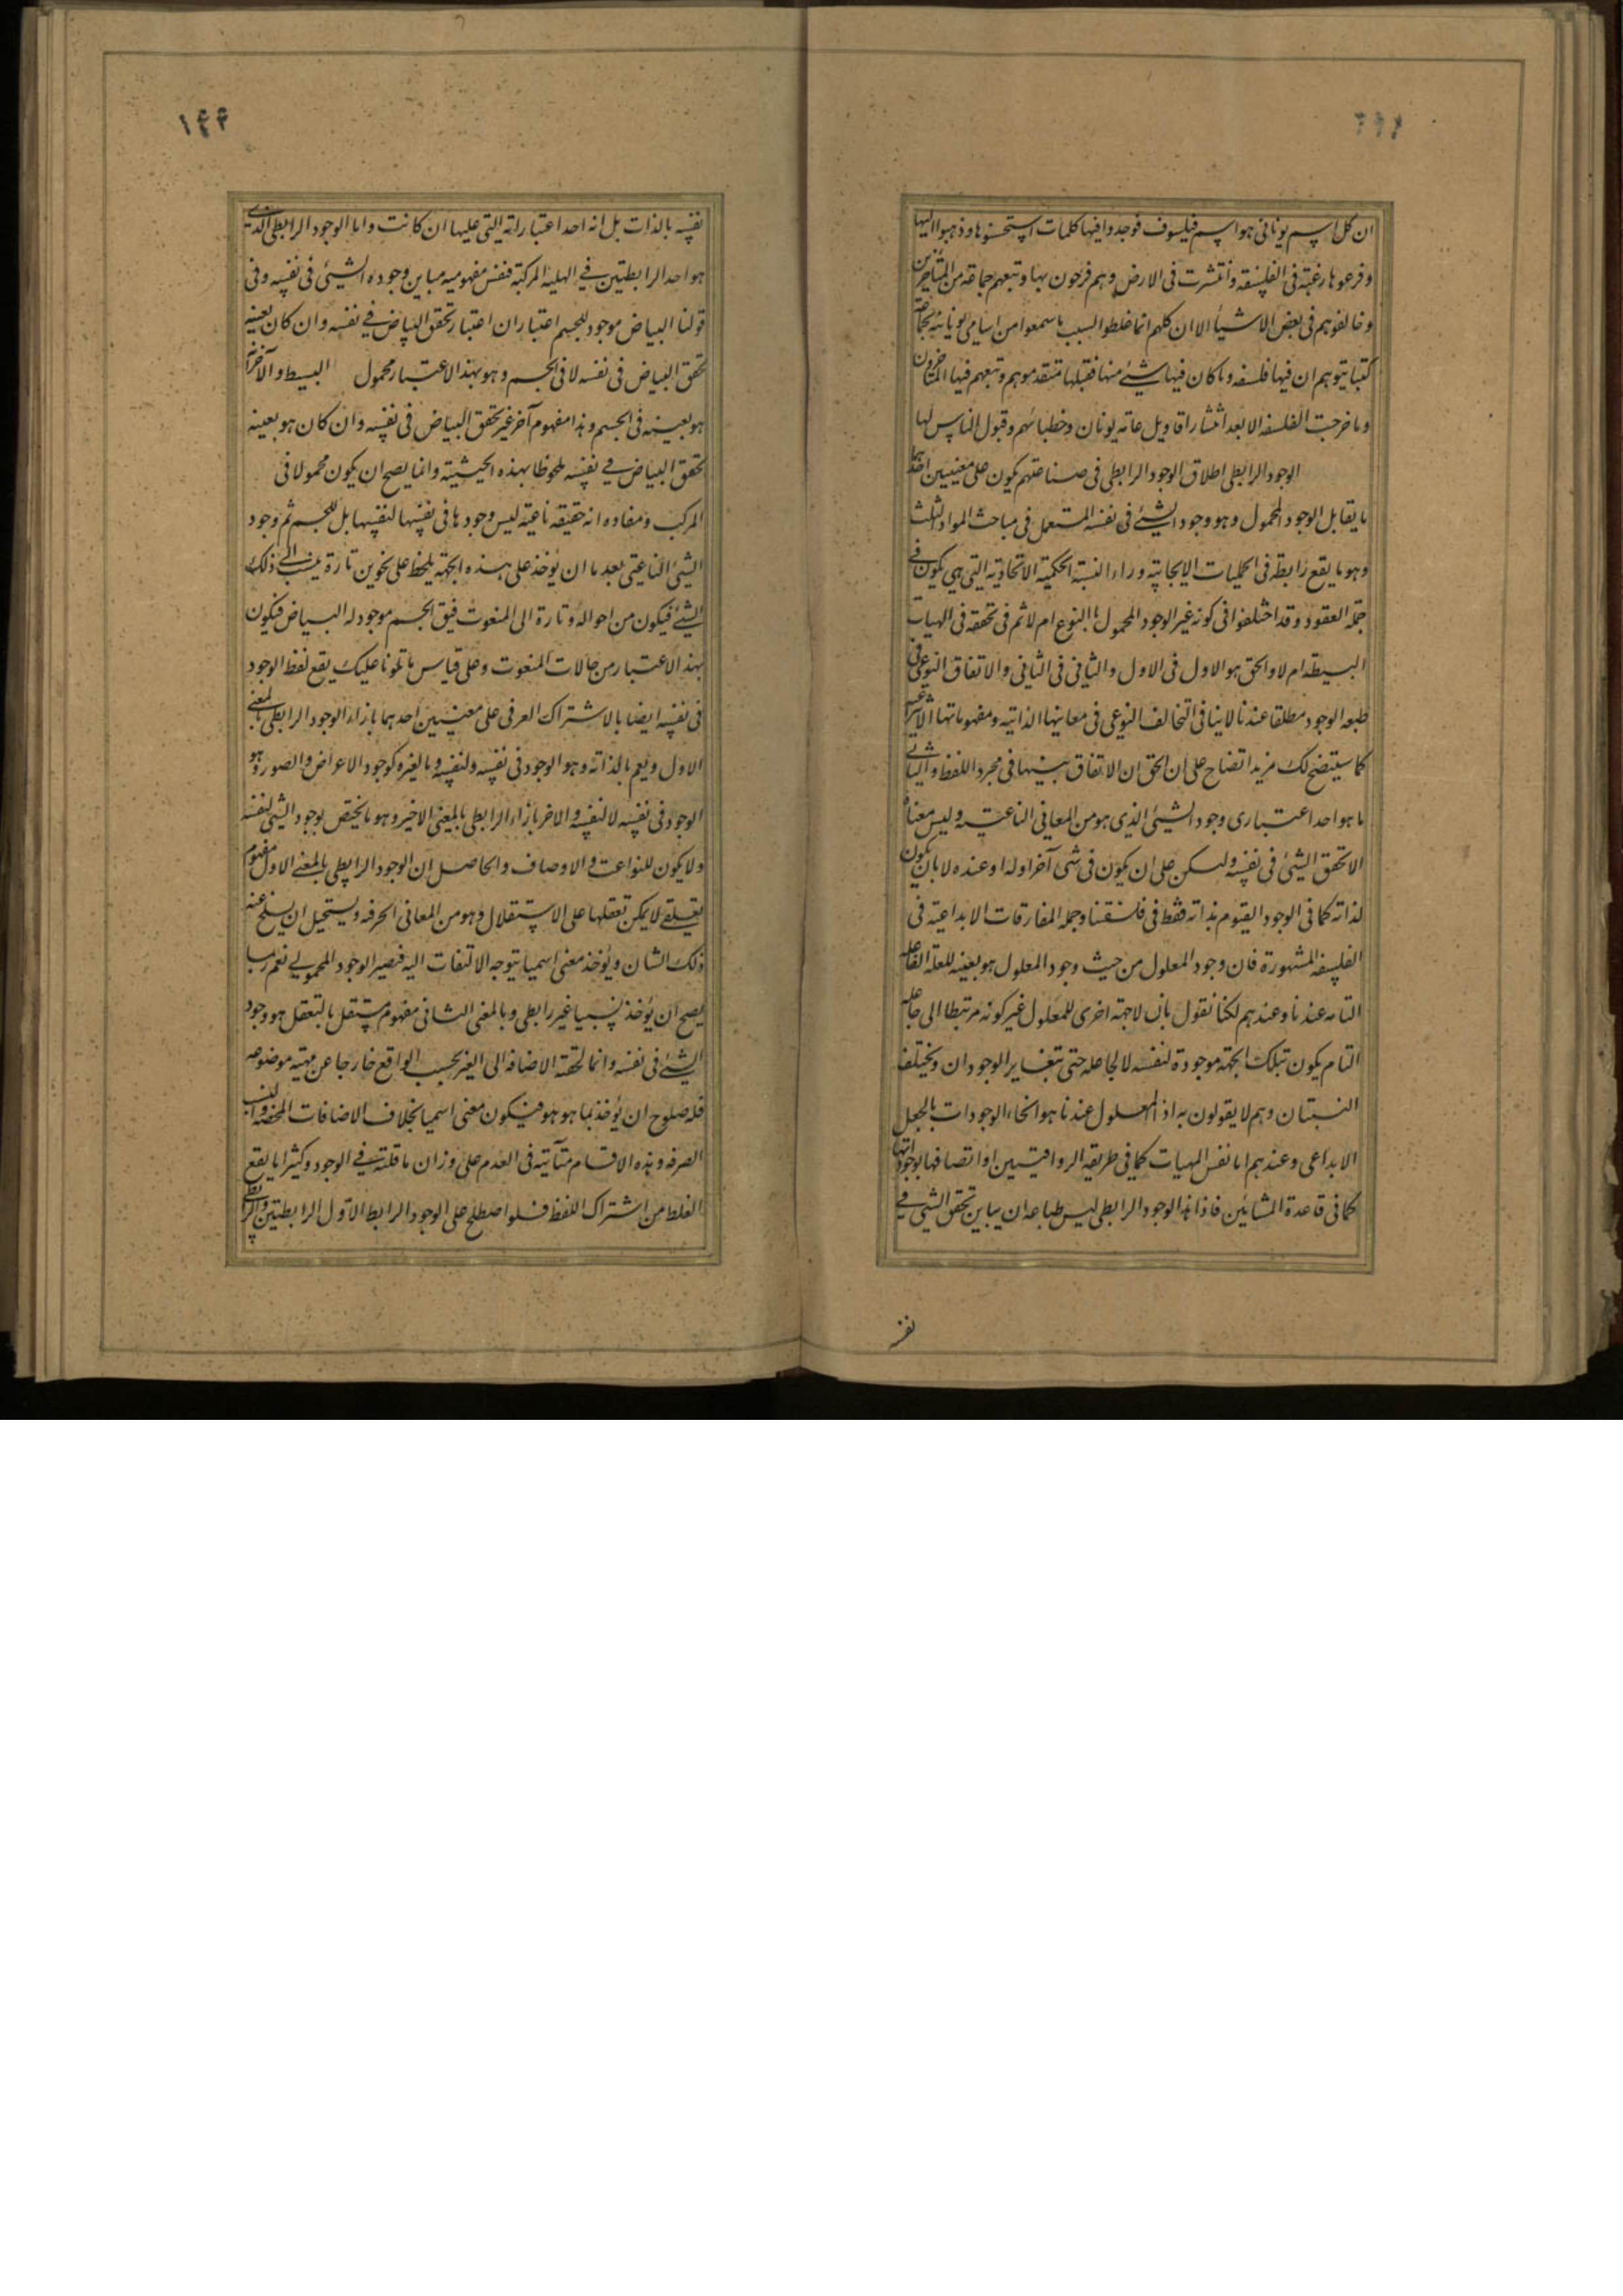 ان كل اسم يونانى هو اسم فيلسوف فوجدوا فيها كلمات استحسنوها وذهبوا اليها
و فرعوها رغبة فى الفلسفة وانتشرت فى الارض وهم فرحون بها وتبعهم جماعة من المتأخرين
و خالفوهم فى بعض الاشياء الا ان كلهم انما غلطوا لسبب ما سمعوا من اسامى يونانية لجماعة
كتبا يتوهم ان فيها فلسفه وما كان فيها شئ منها فقبلها متقدموهم وتبعهم فيها المتأخرون
وما خرجت الفلسفه الا بعد انتشار اقاويل عامة يونان وخطبائهم وقبول الناس لها
الوجود الرابطى اطلاق الوجود الرابطى فى صناعتهم يكون على معنيين احدهما
ما يقابل الوجود المحمول وهو وجود الشئ فى نفسه المستعمل فى مباحث المواد الثلث
وهو ما يقع رابطة فى الحمليات الايجابية وراء النسبة الحكمية الاتحادية التى هى يكون فى
جملة العقود وقد اختلفوا فى كونه غير الوجود المحمول بالنوع ام لا ثم فى تحققه فى الهليات
البسيطه ام لا والحق هو الاول فى الاول والثانى فى الثانى والاتفاق النوعى فى
طبيعه الوجود مطلقا عندنا لا ينافى التخالف النوعى فى معانيها الذاتيه ومفهوماتها الانتزاعية
كما سيتضح لك مزيد اتضاح على ان الحق ان الاتفاق بينهما فى مجرد اللفظ والثانى
ما هو احد اعتبارى وجود الشئ الذى هو من المعانى الناعتيه وليس معناه
الا تحقق الشئ فى نفسه ولكن على ان يكون فى شئ آخر او له او عنده لا بان يكون
لذاته كما فى الوجود القيوم بذاته فقط فى فلسفتنا وجمله المفارقات الابداعية فى
الفلسفه المشهورة فان وجود المعلول من حيث وجود المعلول هو بعينه للعلة الفاعله
التامه عندنا وعندهم لكنا نقول بان لا جهة اخرى للمعلول غير كونه مرتبطا الى جاعله
التام يكون بتلك الجهة موجودة لنفسه لا لجاعله حتى يتغاير الوجودان ويختلف
النسبتان وهم لا يقولون به اذ المعلول عندنا هو انحاء الوجودات بالجعل
الابداعى وعندهم اما نفس المهيات كما فى طريقه الرواقيين او اتصافها بوجوداتها
كما فى قاعدة المشائين فاذا هذا الوجود الرابطى ليس طباعه ان يباين تحقق الشئ فى
نفسه
١٤٤
نفسه بالذات بل انه احد اعتباراته التى عليها ان كانت واما الوجود الرابطى الذى
هو احد الرابطتين فى الهليه المركبة فنفس مفهوميه مباين وجوده الشئ فى نفسه وفى
قولنا البياض موجود للجسم اعتباران اعتبار تحقق البياض فى نفسه وان كان بعينه
تحقق البياض فى نفسه لا فى الجسم وهو بهذا الاعتبار محمول البسيط والآخر انه
هو بعينه فى الجسم وهذا مفهوم آخر غير تحقق البياض فى نفسه وان كان هو بعينه
تحقق البياض فى نفسه ملحوظا بهذه الحيثيه وانما يصح ان يكون محمولا فى
المركب ومفاده انه حقيقه ناعتيه ليس وجودها فى نفسها لنفسها بل للجسم ثم وجود
الشئ الناعتى بعد ما ان يؤخذ على هذه الجهة يلحظ على نحوين تارة ينسب الى ذلك
الشئ فيكون من احواله وتارة الى المنعوت فيق الجسم موجود له البياض فيكون
بهذا الاعتبار من حالات المنعوت وعلى قياس ما تلونا عليك يقع لفظ الوجود
فى نفسه ايضا بالاشتراك العرفى على معنيين احدهما بازاء الوجود الرابطى بالمعنى
الاول ويعم ما لذاته وهو الوجود فى نفسه ولنفسه وما لغيره كوجود الاعراض والصور وهو
الوجود فى نفسه لا لنفسه والاخر بازاء الرابطى بالمعنى الاخير وهو ما يختص بوجود الشئ لنفسه
ولا يكون للنواعت والاوصاف والحاصل ان الوجود الرابطى بالمعنى الاول مفهوم
تعلقى لا يمكن تعقلها على الاستقلال وهو من المعانى الحرفه ويستحيل ان يسلخ عنه
ذلك الشان ويؤخذ معنى اسميا بتوجه الالتفات اليه فيصير الوجود المحمولى نعم ربما
يصح ان يؤخذ نسبيا غير رابطى وبالمعنى الثانى مفهوم مستقل بالتعقل هو وجود
الشئ فى نفسه وانما لحقته الاضافه الى الغير بحسب الواقع خارجا عن مهيه موضوعه
فله صلوح ان يؤخذ بما هو هو فيكون معنى اسميا بخلاف الاضافات المحضه والنسب
الصرفه وهذه الاقسام متأتيه فى العدم على وزان ما قلته فى الوجود وكثيرا ما يقع
الغلط من اشتراك اللفظ فلو اصطلح على الوجود الرابط الاول الرابطتين والرابطى